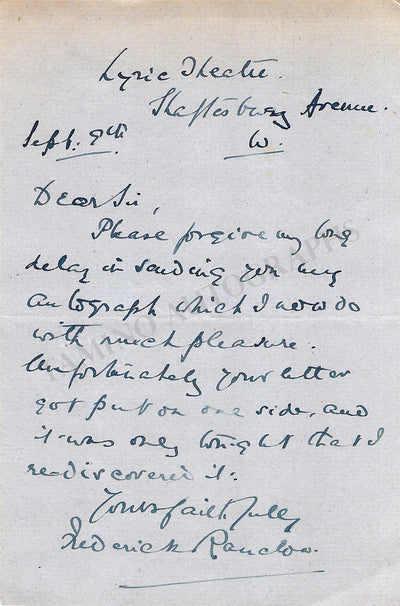 Lyric Theatre.
Shaftesbury Avenue.
Sept. 9th W.
Dear Sir,
Please forgive my long
delay in sending you my
autograph which I now do
with much pleasure.
Unfortunately your letter
got put on one side, and
it was only tonight that I
re-discovered it.
Yours faithfully
Frederick Ranalow.
TAMINO AUTOGRAPHS